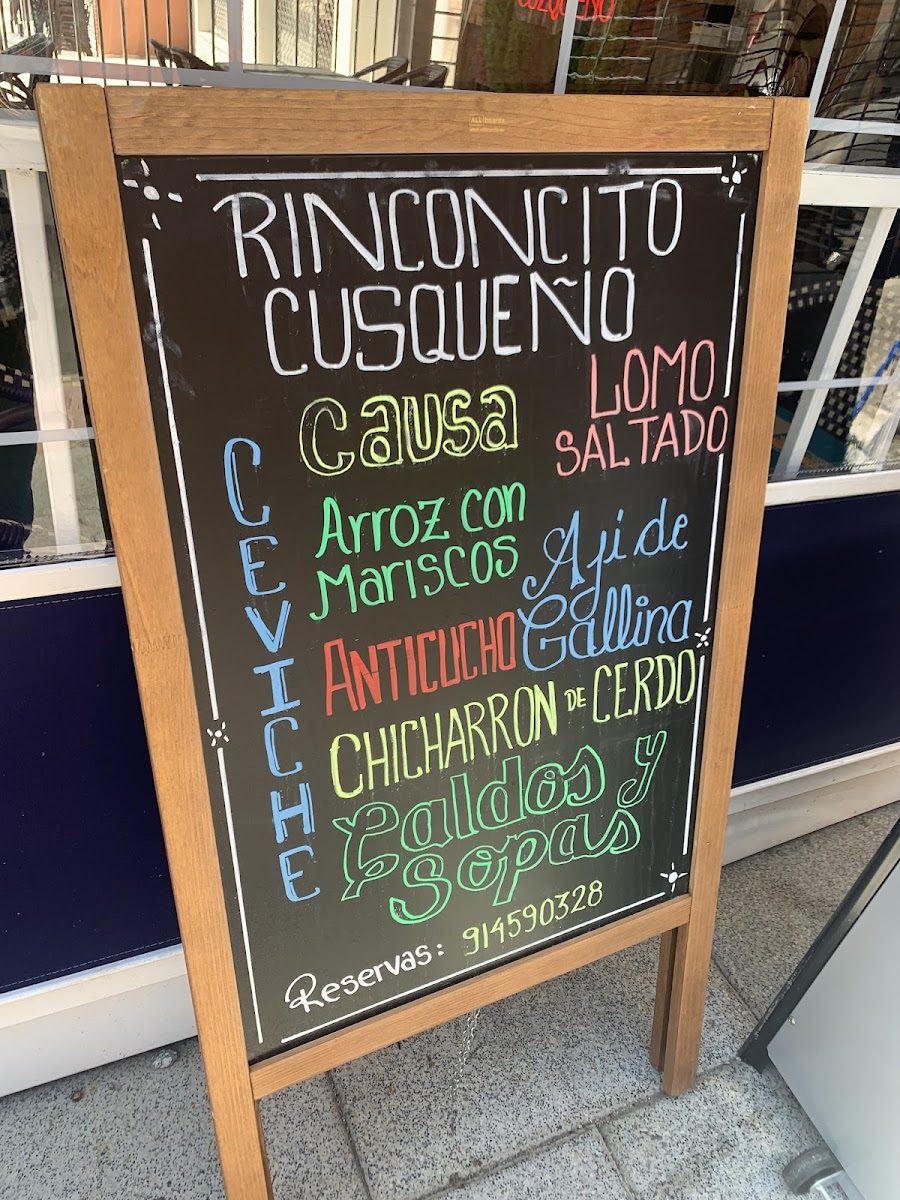 CUZQUEÑO
RINCONCITO
CUSQUEÑO
Causa
LOMO
SALTADO
CEVICHE
Arroz con
Mariscos
Aji de
Gallina
ANTICUCHO
CHICHARRON DE CERDO
Caldos y
Sopas
Reservas: 914590328